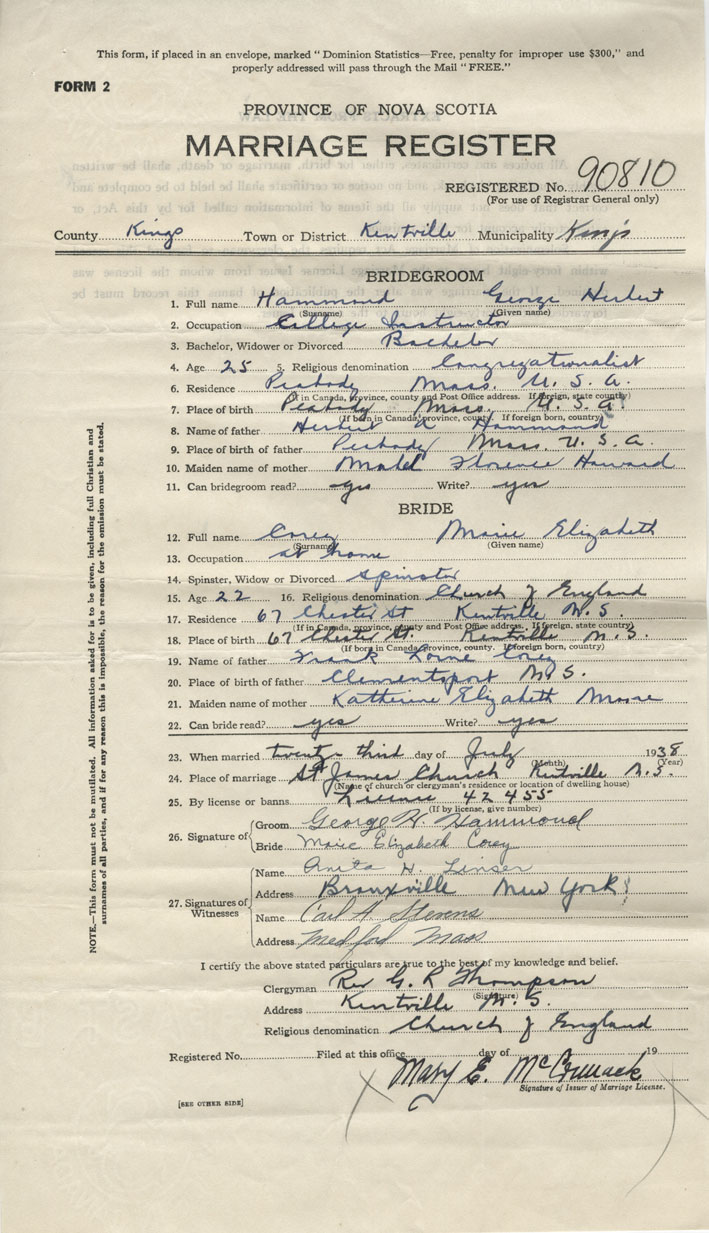 This form, if placed in an envelope, marked "Dominion Statistics—Free, penalty for improper use $300," and
properly addressed will pass through the Mail "FREE."
FORM 2
PROVINCE OF NOVA SCOTIA
MARRIAGE REGISTER
REGISTERED No. 90810
(For use of Registrar General only)
County Kings Town or District Kentville Municipality Kings
BRIDEGROOM
1. Full name Hammond George Herbert
(Surname) (Given name)
2. Occupation College Instructor
3. Bachelor, Widower or Divorced Bachelor
4. Age 25 5. Religious denomination Congregationalist
6. Residence Peabody Mass. U. S. A.
(If in Canada, province, county and Post Office address. If foreign, state country)
7. Place of birth Peabody Mass. U. S. A.
(If born in Canada, province, county. If foreign born, country)
8. Name of father Herbert A Hammond
9. Place of birth of father Peabody Mass. U. S. A.
10. Maiden name of mother Mabel Florence Howard
11. Can bridegroom read? yes Write? yes
BRIDE
12. Full name Corey Marie Elizabeth
(Surname) (Given name)
13. Occupation at home
14. Spinster, Widow or Divorced Spinster
15. Age 22 16. Religious denomination Church of England
17. Residence 67 Chester St Kentville N. S.
(If in Canada, province, county and Post Office address. If foreign, state country)
18. Place of birth 67 Chester St. Kentville N. S.
(If born in Canada, province, county. If foreign born, country)
19. Name of father Frank Lorne Corey
20. Place of birth of father Clementsport N. S.
21. Maiden name of mother Katherine Elizabeth Moore
22. Can bride read? yes Write? yes
23. When married twenty third day of July 1938
(Month) (Year)
24. Place of marriage St James Church Kentville N. S.
(Name of church or clergyman's residence or location of dwelling house)
25. By license or banns License 42455
(If by license, give number)
26. Signature of
Groom George H. Hammond
Bride Marie Elizabeth Corey
27. Signatures of Witnesses
Name Anita H. Linser
Address Bronxville New York
Name Carl A. Stevens
Address Medford Mass
I certify the above stated particulars are true to the best of my knowledge and belief.
Clergyman Rev G. R Thompson
(Signature)
Address Kentville N. S.
Religious denomination Church of England
Registered No. Filed at this office day of 19
Mary E. McCormack
Signature of Issuer of Marriage License.
[SEE OTHER SIDE]
NOTE.—This form must not be mutilated. All information asked for is to be given, including full Christian and
surnames of all parties, and if for any reason this is impossible, the reason for the omission must be stated.